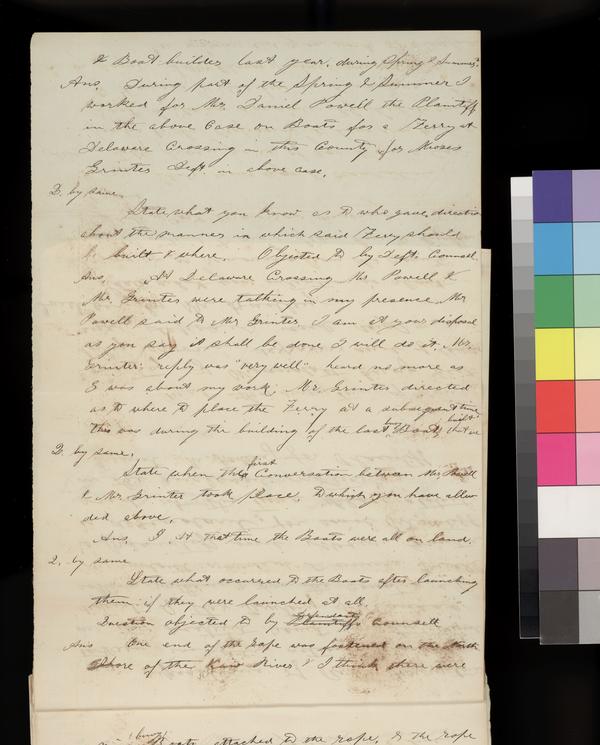 & Boat builder last year, during Spring & Summer.
Ans. During part of the Spring & Summer I
worked for Mr. Daniel Powell the Plaintiff
in the above Case on Boats for a Ferry at
Delaware Crossing in this County for Moses
Grinter Deft. in above case.
2. by same
State what you know as to who gave direction
about the manner in which said Ferry should
be built & where. Objected to by Defts. Counsel.
Ans. At Delaware Crossing Mr. Powell &
Mr. Grinter were talking in my presence Mr
Powell said to Mr Grinter I am at your disposal
as you say it shall be done I will do it. Mr.
Grinter reply was "very well" heard no more as
I was about my work. Mr. Grinter directed
as to where to place the Ferry at a subsequent time,
this was during the building of the last two Boats that we built
2. by same.
State when the first Conversation between Mr. Powell
& Mr Grinter took place, to which you have allu
ded above.
Ans. At that time the Boats were all on land.
2. by same
State what occurred to the Boats after launching
them if they were launched at all
Question objected to by defendants Counsell
Ans One end of the rope was fastened on the North
Shore of the Kaw River & I think there were
Boats attached to the rope, & the rope